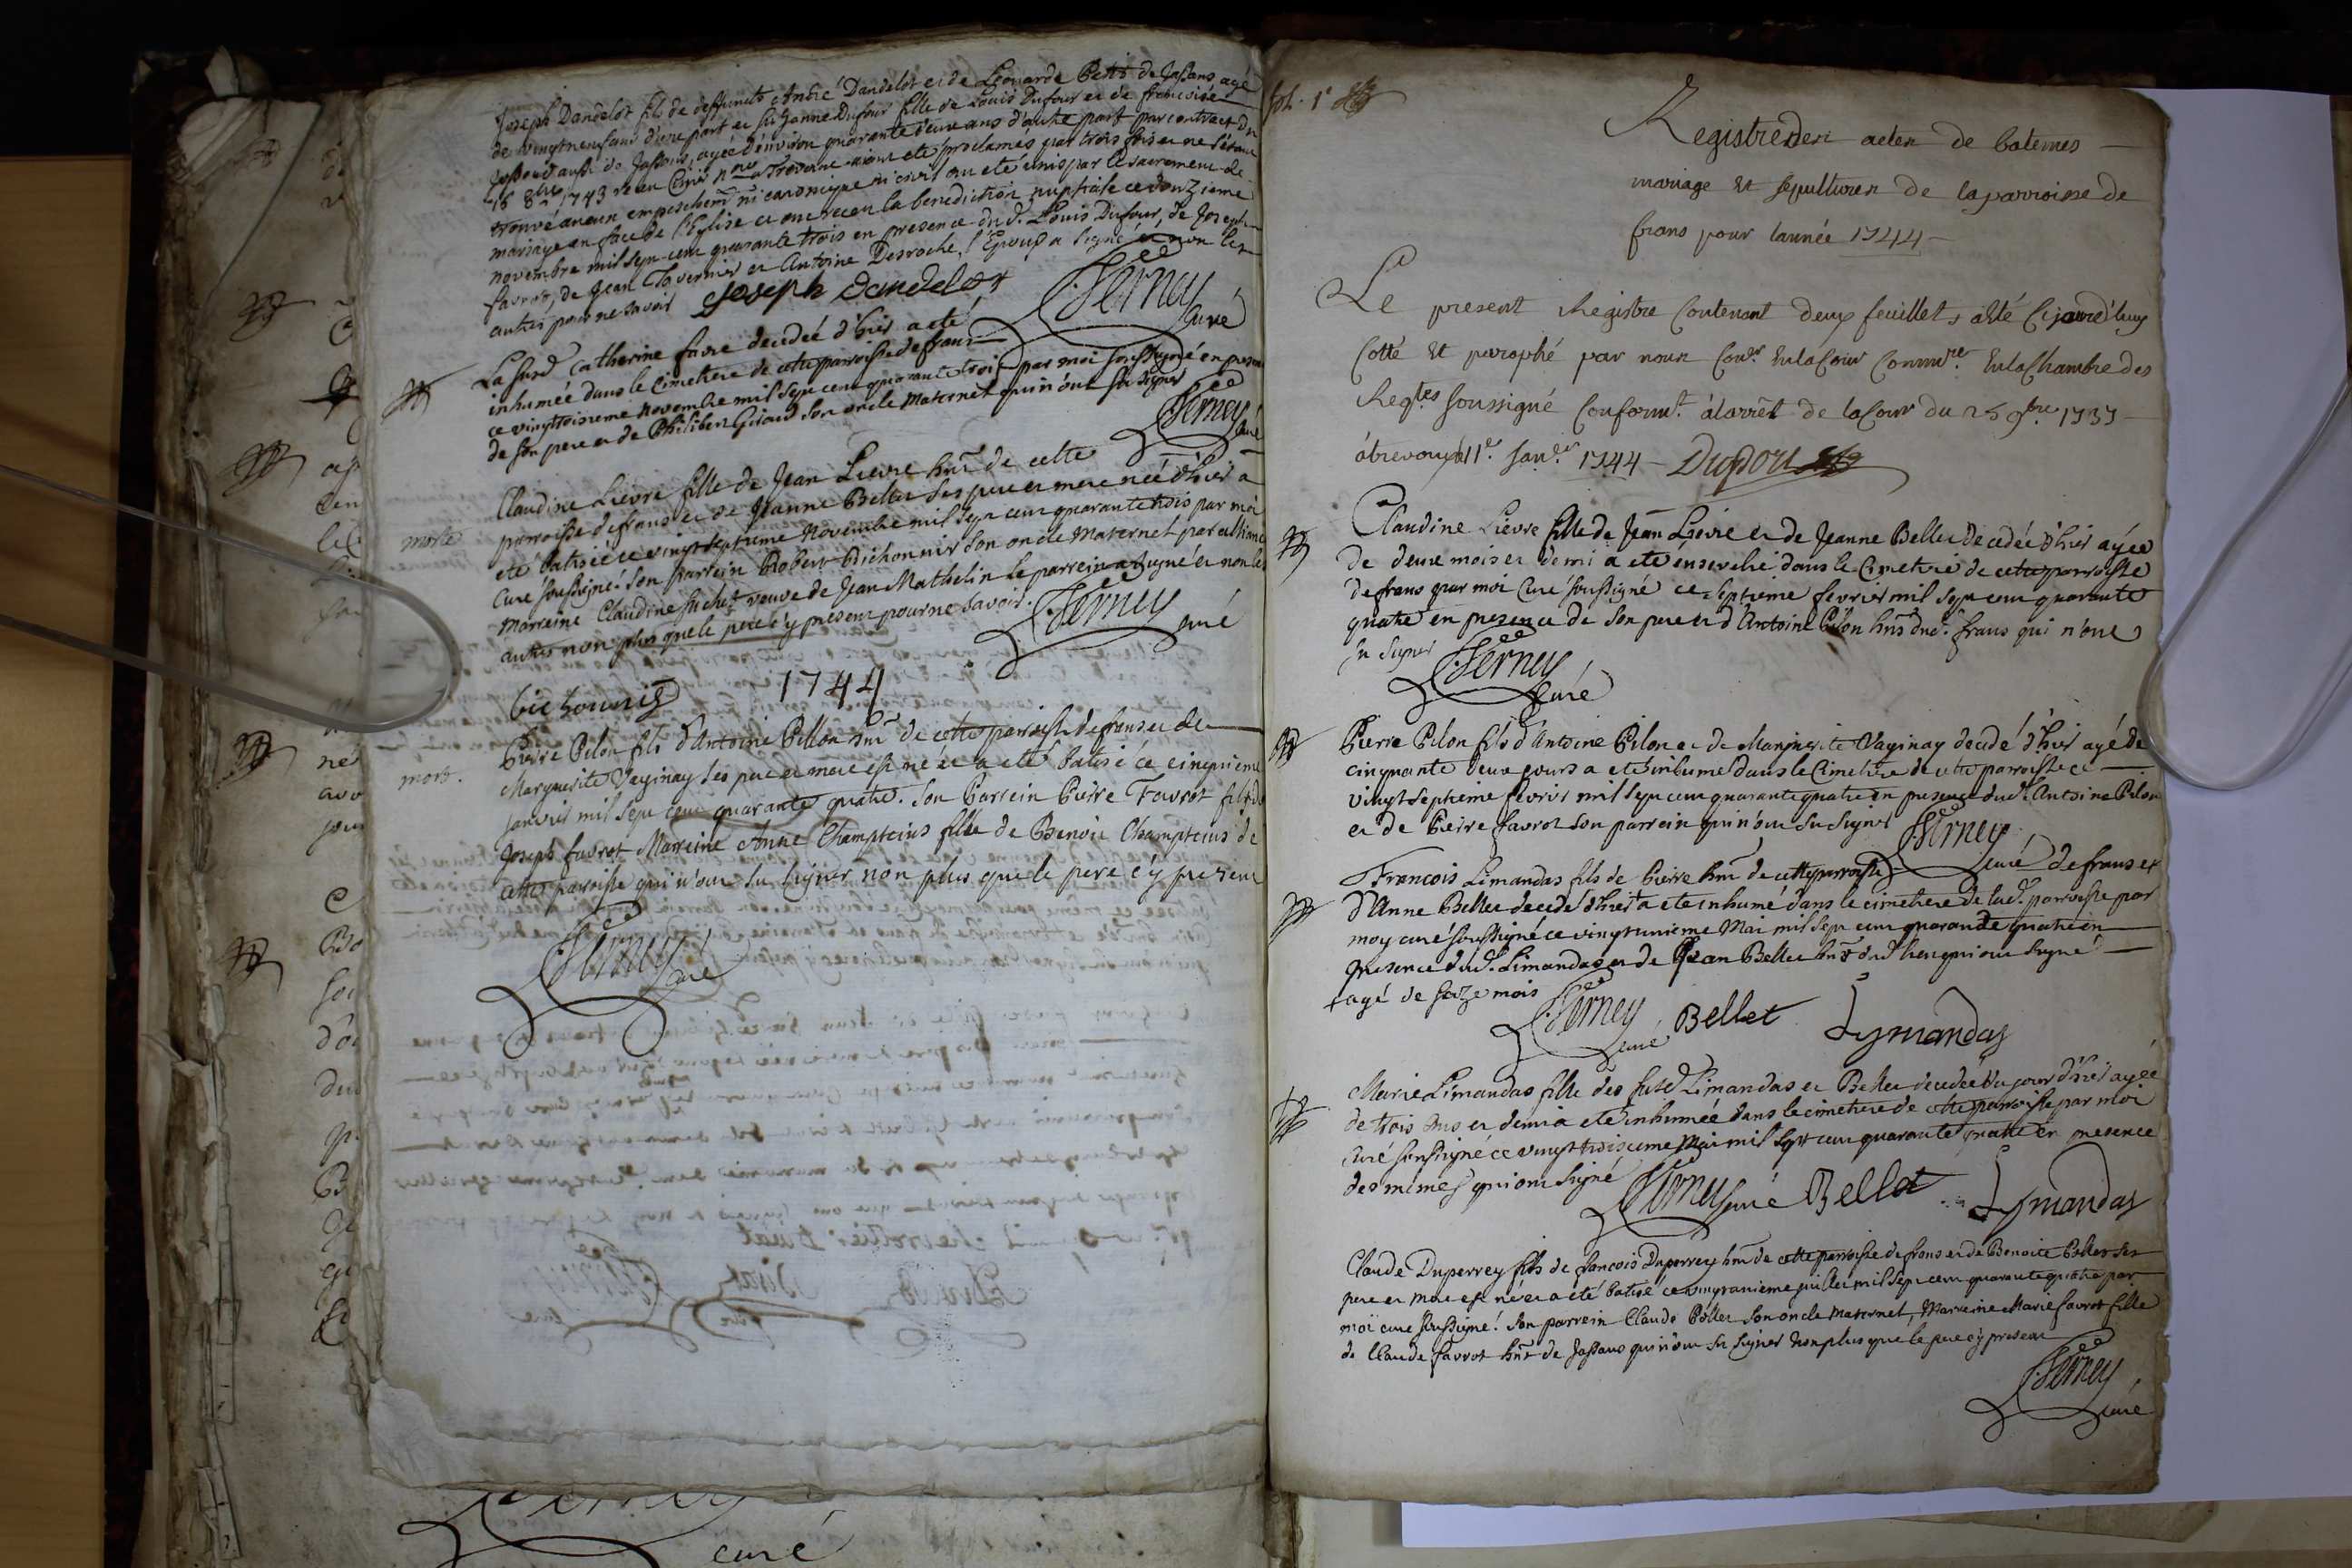 Joseph Dandelot fils de deffuncts André Dandelot et de Léonarde Petit de Jassans agé
de vingtneuf ans d'une part et Suzanne Dufour fille de Louis Dufour et de francoise
aussi de Jassans, agée d'environ quarante deux ans d'autre part par contract du
16 8bre 1743 recu aiant eté proclamés par trois fois et ne s'étant
trouvé aucun empeschemt ni canonique ni civil ont eté unis par le sacrement de
mariage en face de l'Eglise et ont receu la benediction nuptiale ce douzieme
novembre mil sept cent quarante trois en presence dud. Louis Dufour, de Joseph
favrot, de Jean Tavernier et Antoine Desroche, l'Epoux a signé et non les
autres pour ne savoir Joseph Dandelot
Ferney curé
La Catherine favre decedée d'hier a eté
inhumée dans le Cimetiere de cette parroisse de frans
ce vingttroisieme novembre mil sept cent quarante trois par moi soussigné en presence
de son pere et de Philibert Giraud son oncle maternel qui n'ont su signer
Ferney curé
Claudine Lievre fille de Jean Lievre hnt de cette
parroisse de frans et de Jeanne Bellet ses pere et mere née d'hier a
morte eté batisée ce vingt septieme Novembre mil sept cent quarante trois par moi
Curé soussigné. son parrein Robert Bichonnier son oncle Maternel par alliance
Marreine Claudine Suchet veuve de Jean Mathelin le parrein a signé et non les
autres non plus que le pere c'y present pour ne savoir. Ferney curé
bichonnier
1744
Pierre Pilon fils d'Antoine Pillon hnt de cette parroisse de frans et de
mort. Marguerite Vaginay ses pere et mere est né et a eté batisé ce cinquieme
janvier mil sept cent quarante quatre. Son Parrein Pierre Favrot fils de
Joseph favrot Marreine Anne Champteins fille de Benoit Champteins de
cette parroisse qui n'ont su signer non plus que le pere c'y present
Ferney curé
curé
fol. 1e
Registre des actes de batemes
mariage et sepultures de la parroisse de
frans pour l'année 1744
Le present Registre Contenant deux feuillets a eté Cejourd'huy
Cotté et parophé par nous Coner en la Cour Commre. en la Chambre des
Reqtes soussigné Conformt. a l'arrêt de la Cour du 25 9bre 1737
a trevoux le 11e. Janer 1744 Duport
Claudine Lievre fille de Jean Lievre et de Jeanne Bellet decedée d'hier agée
de deux mois et demi a eté ensevelie dans le Cimetiere de cette parroisse
de frans par moi Curé soussigné ce septieme fevrier mil sept cent quarante
quatre en presence de son pere et d'Antoine Pilon hnt dud. frans qui n'ont
su signer Ferney
Curé
Pierre Pilon fils d'Antoine Pilon et de Marguerite Vaginay decedé d'hier agé de
cinquante deux jours a eté inhumé dans le Cimetiere de cette parroisse ce
vingt septieme fevrier mil sept cent quarante quatre en presence dud. Antoine Pilon
et de Pierre favrot son parrein qui n'ont su signer Ferney
curé
Francois Limandas fils de Pierre hnt de cette parroisse de frans et
d'Anne Bellet decedé d'hier + a eté inhumé dans le cimetiere de lad. parroisse par
moy curé soussigné ce vingtunieme Mai mil sept cent quarande quatre en
presence dud. Limandas et de Jean Bellet hnt dud. lieu qui ont signé
+ agé de seize mois Ferney curé Bellet Lymandas
Marie Limandas fille des susd. Limandas et Bellet decedée du jour d'hier agée
de trois ans et demi a eté inhumée dans le cimetiere de cette parroisse par moi
curé soussigné ce vingttroisieme Mai mil sept cent quarante quatre en presence
des mêmes qui ont signé Ferney curé Bellet Lymandas
Claude Duperrey fils de francois Duperrey hnt de cette parroisse de frans et de Benoite Bellet ses
pere et mere est né et a été batisé ce vingtunieme juillet mil sept cent quarante quatre par
moi curé soussigné. Son parrein Claude Bellet son oncle maternel, Marreine Marie favrot fille
de Claude favrot hnt de Jassans qui n'ont su signer non plus que le pere c'y present
Ferney
curé